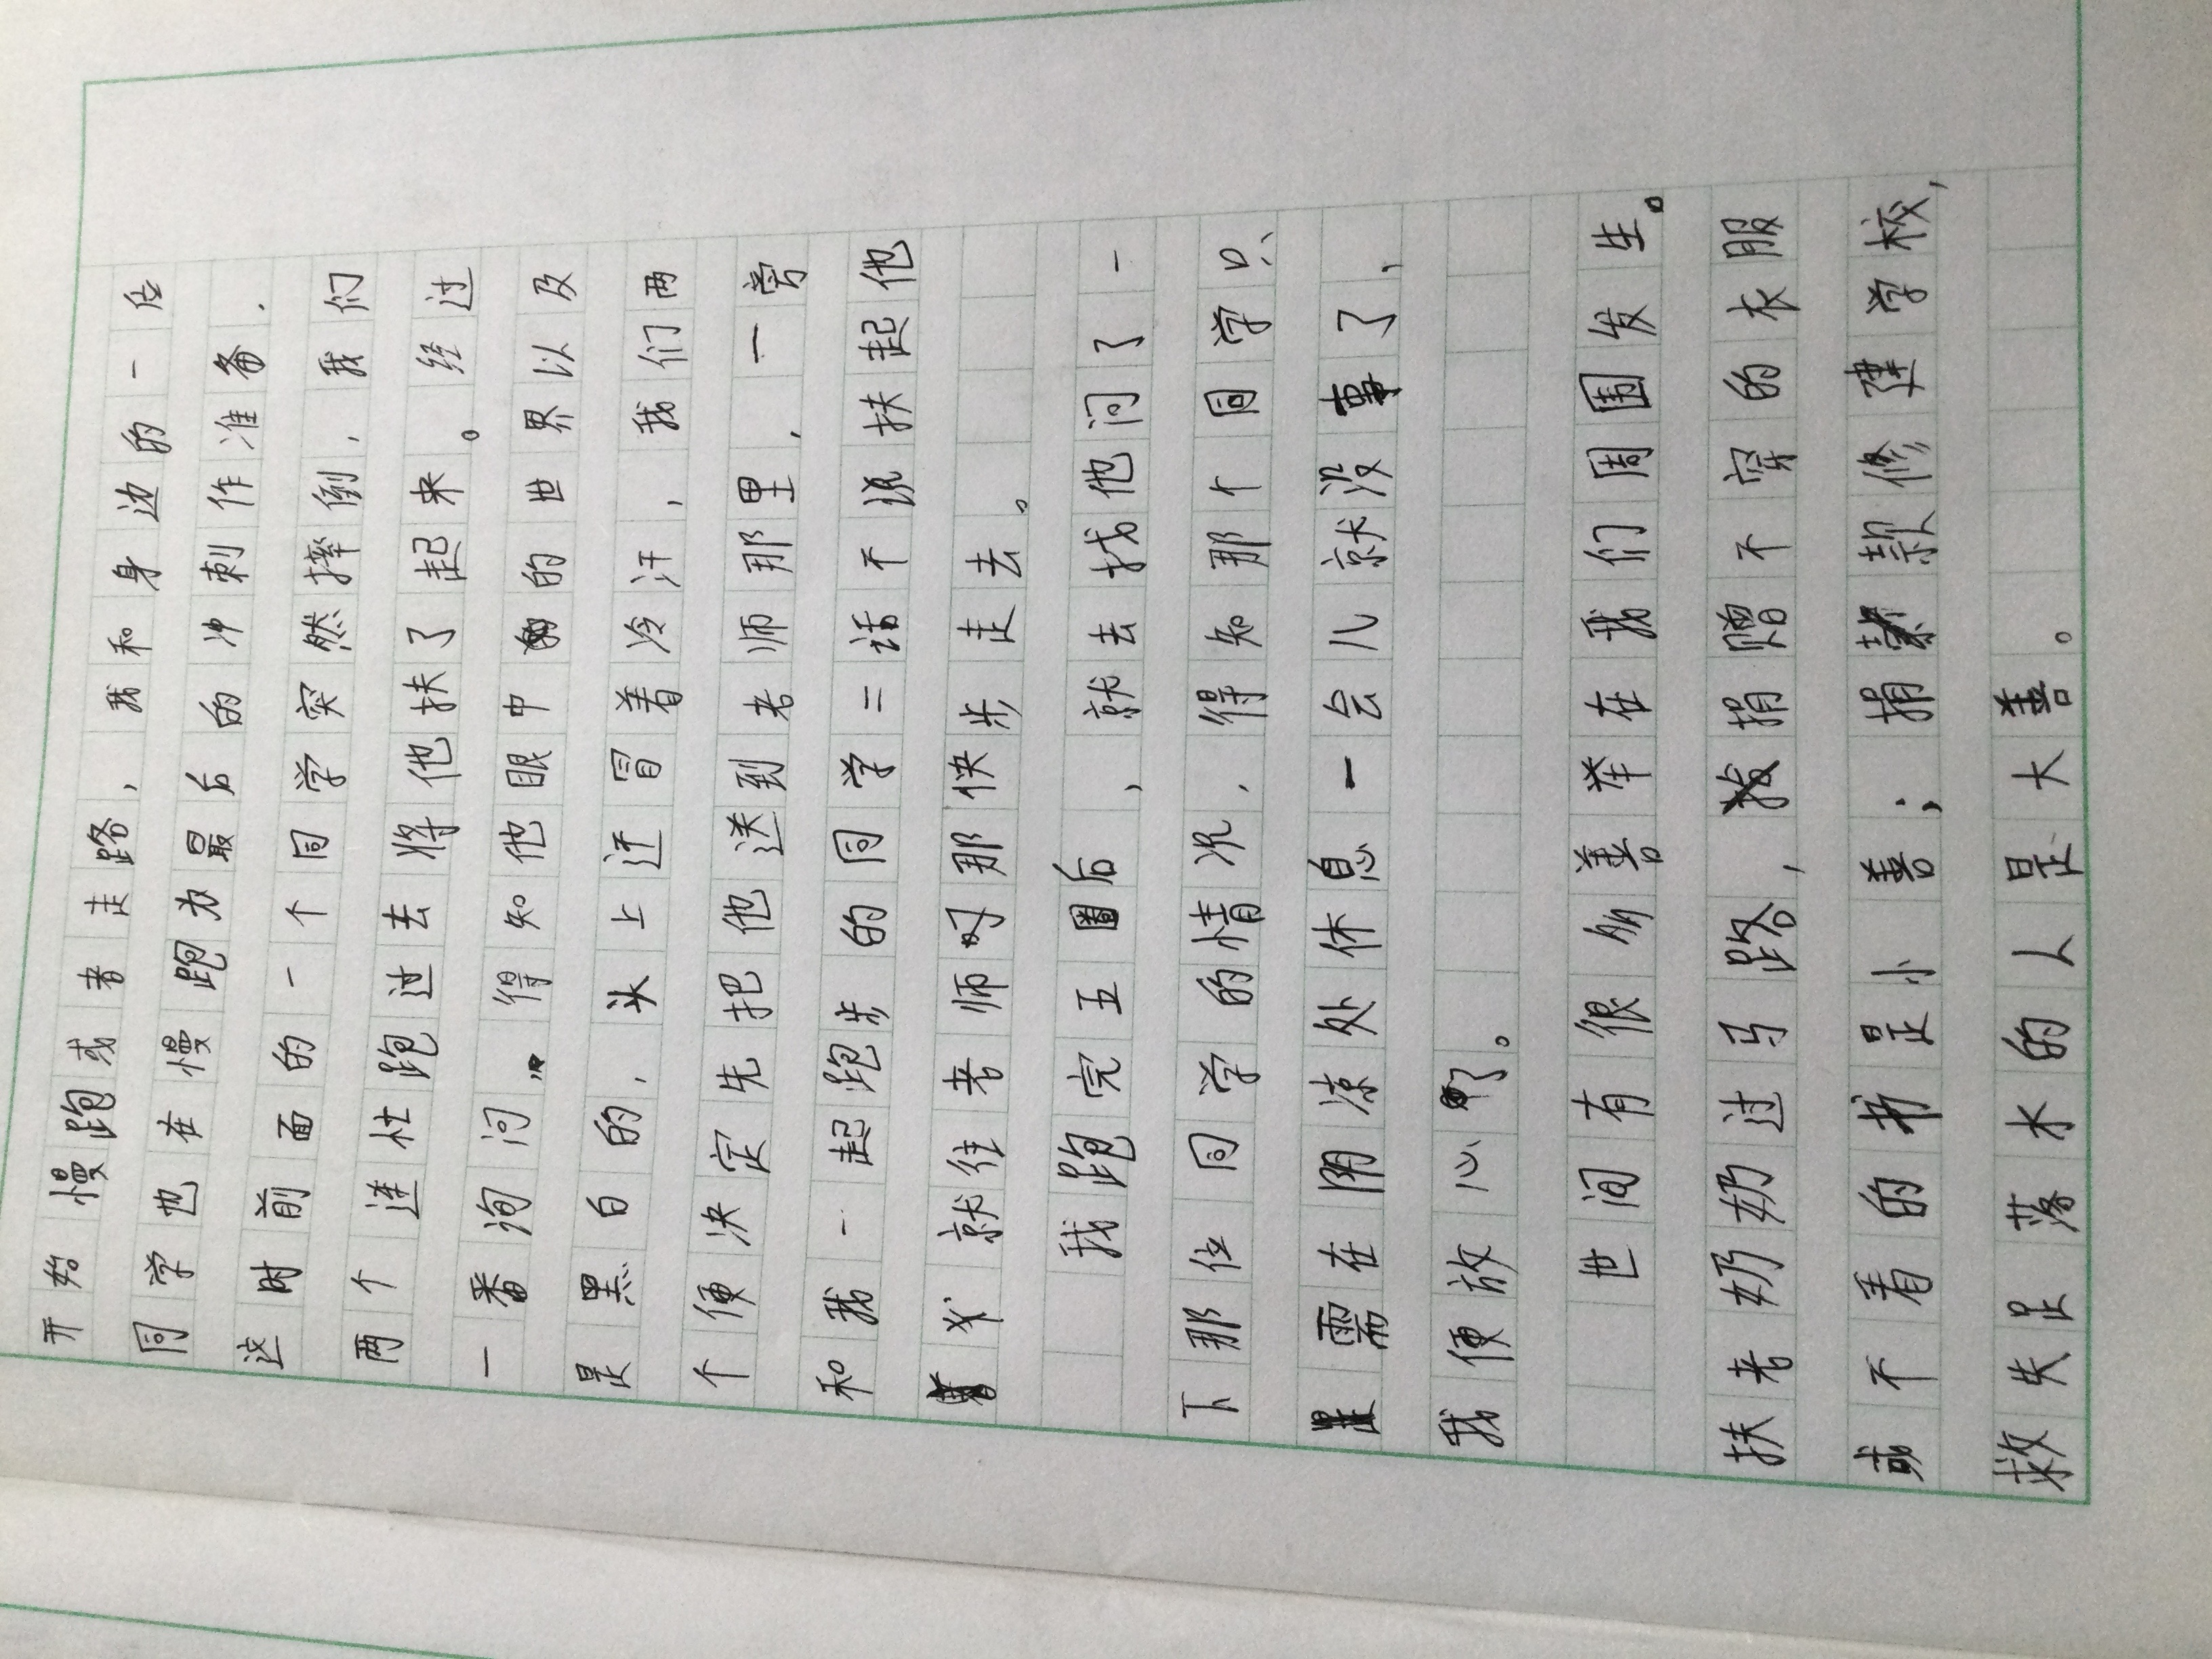 开始慢跑或者走路，我和身边的一位
同学也在慢跑为最后的冲刺作准备.
这时前面的一个同学突然摔倒，我们
两个连忙跑过去将他扶了起来。经过
一番询问，得知他眼中的世界以及
是黑白的，头上还冒着冷汗，我们两
个便决定先把他送到老师那里，一旁
和我一起跑步的同学二话不说扶起他
就往老师那快步走去。
我跑完五圈后，就去找他问了一
下那位同学的情况，得知那个同学只、
需在阴凉处休息一会儿就没事了，
我便放心了。
世间有很多善举在我们周围发生。
扶老奶奶过马路，捐赠不穿的衣服
或不看的书是小善；捐款修建学校，
救失足落水的人是大善。